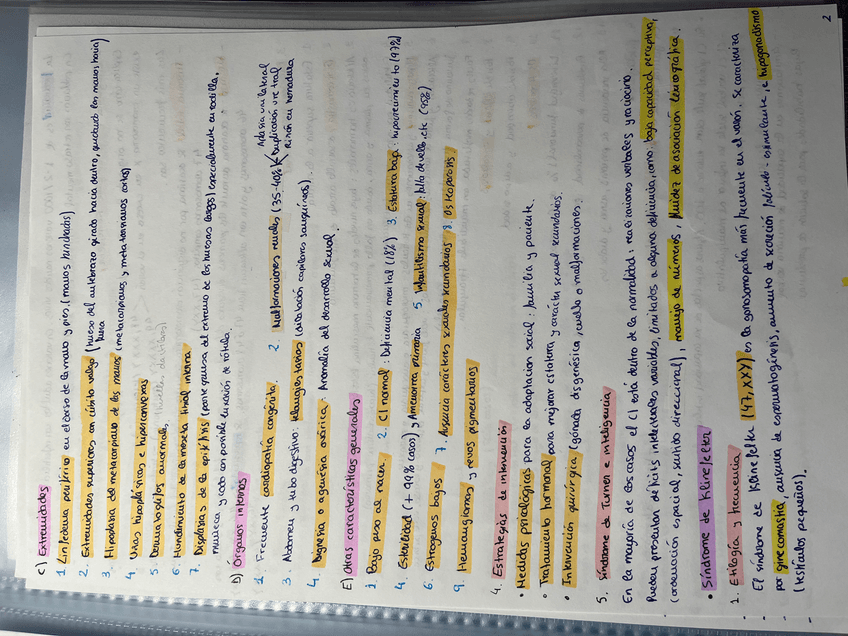 C) Extremidades
1. Linfedema periférico en el dorso de la mano y pies (manos hinchadas)
2. Extremidades superiores con cúbito valgo (hueso del antebrazo girado hacia dentro, quedando las manos hacia fuera
3. Hipoplasia del metacarpiano de las manos (metacarpianos y metatarsianos cortos)
4. Uñas hipoplásicas e hiperconvexas
5. Dermatoglifos anormales. (huellas dactilares)
6. Hundimiento de la meseta tibial interna
7. Displasias de la epífisis (parte gruesa del extremo de los huesos largos) especialmente en rodilla,
muñeca y codo con posible luxación de rótula.
D) Órganos internos
1. Frecuente cardiopatía congénita. 2. Malformaciones renales (35-40%) Aplasia unilateral
Duplicación uretral
Riñón en herradura
3 Abdomen y tubo digestivo: telangiectasias (dilatación capilares sanguíneos).
4. Disginesia o agenesia ovárica: Anomalía del desarrollo sexual.
E) Otras características generales
1. Bajo peso al nacer 2. CI normal: Deficiencia mental (18%) 3. Estatura baja: hipocrecimiento (97%)
4. Esterilidad (+ 99% casos) y Amenorrea primaria 5. Infantilismo sexual: falta de vello, etc (95%)
6. Estrógenos bajos 7. Ausencia caracteres sexuales secundarios 8. Osteoporosis
9. Hemangiomas y nevos pigmentarios
4. Estrategias de intervención
• Medidas psicológicas para la adaptación social: familia y paciente.
• Tratamiento hormonal para mejorar estatura y caracts sexual secundarios.
• Intervención quirúrgica (gónada disgenésica revuelto o malformaciones.
5. Síndrome de Turner e inteligencia
En la mayoría de los casos el CI está dentro de la normalidad: realizaciones verbales y raciocinio.
Pueden presentar déficits intelectuales variables, limitados a alguna deficiencia, como: baja capacidad perceptiva,
(ordenación espacial, sentido direccional), manejo de números, fluidez de asociación lexicográfica.
• Síndrome de Klinefelter
1. Etiología y frecuencia
El síndrome de Klinefelter (47, XXY) es la gonosomopatía más frecuente en el varón. Se caracteriza
por ginecomastia, ausencia de espermatogénesis, aumento de secreción folículo-estimulante, e hipogonadismo
(testículos pequeños).
2